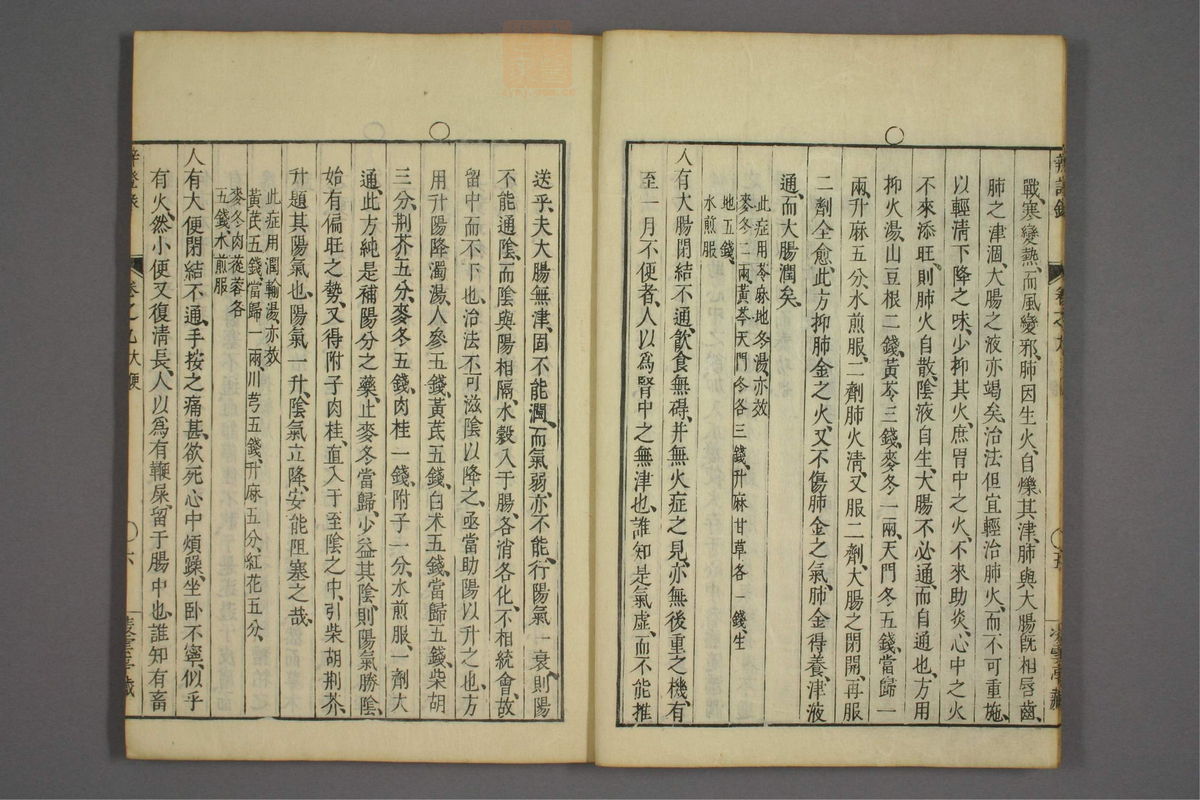 戰、寒變熱、而風變邪、肺因生火、自爍其津、肺與大腸既相唇齒、
肺之津涸、大腸之液亦竭矣、治法但宜輕治肺火、而不可重施、
以輕淸下降之味、少抑其火、庶胃中之火、不來助炎、心中之火
不來添旺、則肺火自散、陰液自生、大腸不必通、而自通也、方用
抑火湯、山豆根二錢、黃芩三錢、麥冬一兩、天門冬五錢、當歸一
兩、升麻五分、水煎服、二劑肺火淸、又服二劑、大腸之閉開、再服
二劑全愈、此方抑肺金之火、又不傷肺金之氣、肺金得養、津液
通、而大腸潤矣、
此症用芩麻地冬湯、亦效
麥冬二兩、黃芩天門冬各三錢、升麻甘草各一錢、生
地五錢、
水煎服
人有大腸閉結不通、飮食無碍、幷無火症之見、亦無後重之機、有
至一月不便者、人以爲腎中之無津也、誰知是氣虛、而不能推
送乎、夫大腸無津、固不能潤、而氣弱、亦不能行、陽氣一衰、則陽
不能通陰、而陰與陽相隔、水穀入于腸、各消各化、不相統會、故
留中而不下也、治法不可滋陰以降之、亟當助陽以升之也、方
用升陽降濁湯、人參五錢、黃芪五錢、白术五錢、當歸五錢、柴胡
三分、荆芥五分、麥冬五錢、肉桂一錢、附子一分、水煎服、一劑大
通、此方純是補陽分之藥、止麥冬當歸、少益其陰、則陽氣勝陰、
始有偏旺之勢、又得附子肉桂、直入于至陰之中、引柴胡荆芥、
升題其陽氣也、陽氣一升、陰氣立降、安能阻塞之哉、
此症用潤輸湯亦效
黃芪五錢、當歸一兩、川芎五錢、升麻五分、紅花五分、
麥冬肉蓯蓉各
五錢、水煎服
人有大便閉結不通、手按之痛甚、欲死、心中煩躁、坐卧不寧、似乎
有火、然小便又復淸長、人以爲有鞭屎、留于腸中也、誰知有畜